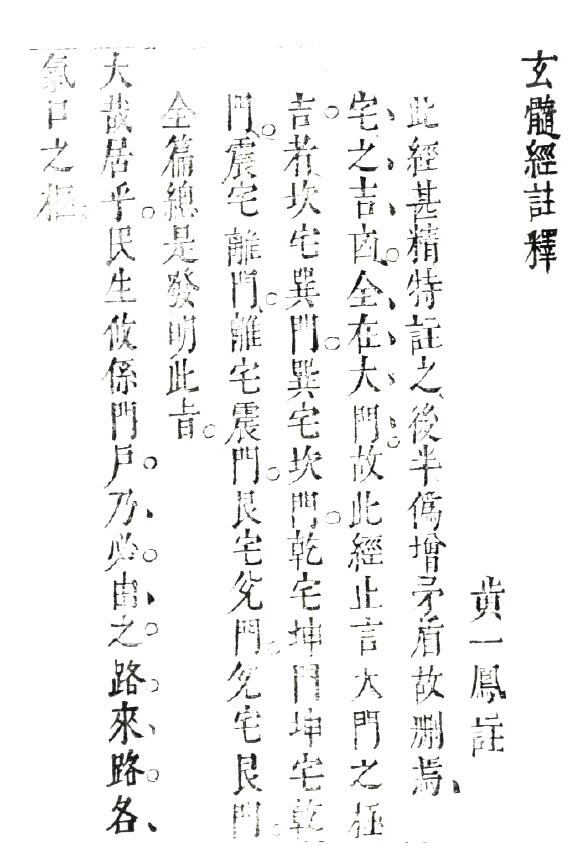 玄髓經註釋
黄一鳳註
此經甚精特註之後半僞增矛盾故刪焉、
宅之吉凶。全在大門。故此經止言大門之極
吉者。坎宅巽門。巽宅坎門。乾宅坤門坤宅乾
門。震宅離門。離宅震門。艮宅兌門。兌宅艮門。
全篇總是發明此旨。
大哉居乎。民生攸係門戶。乃必由之路。來路各、
氣口之樞。